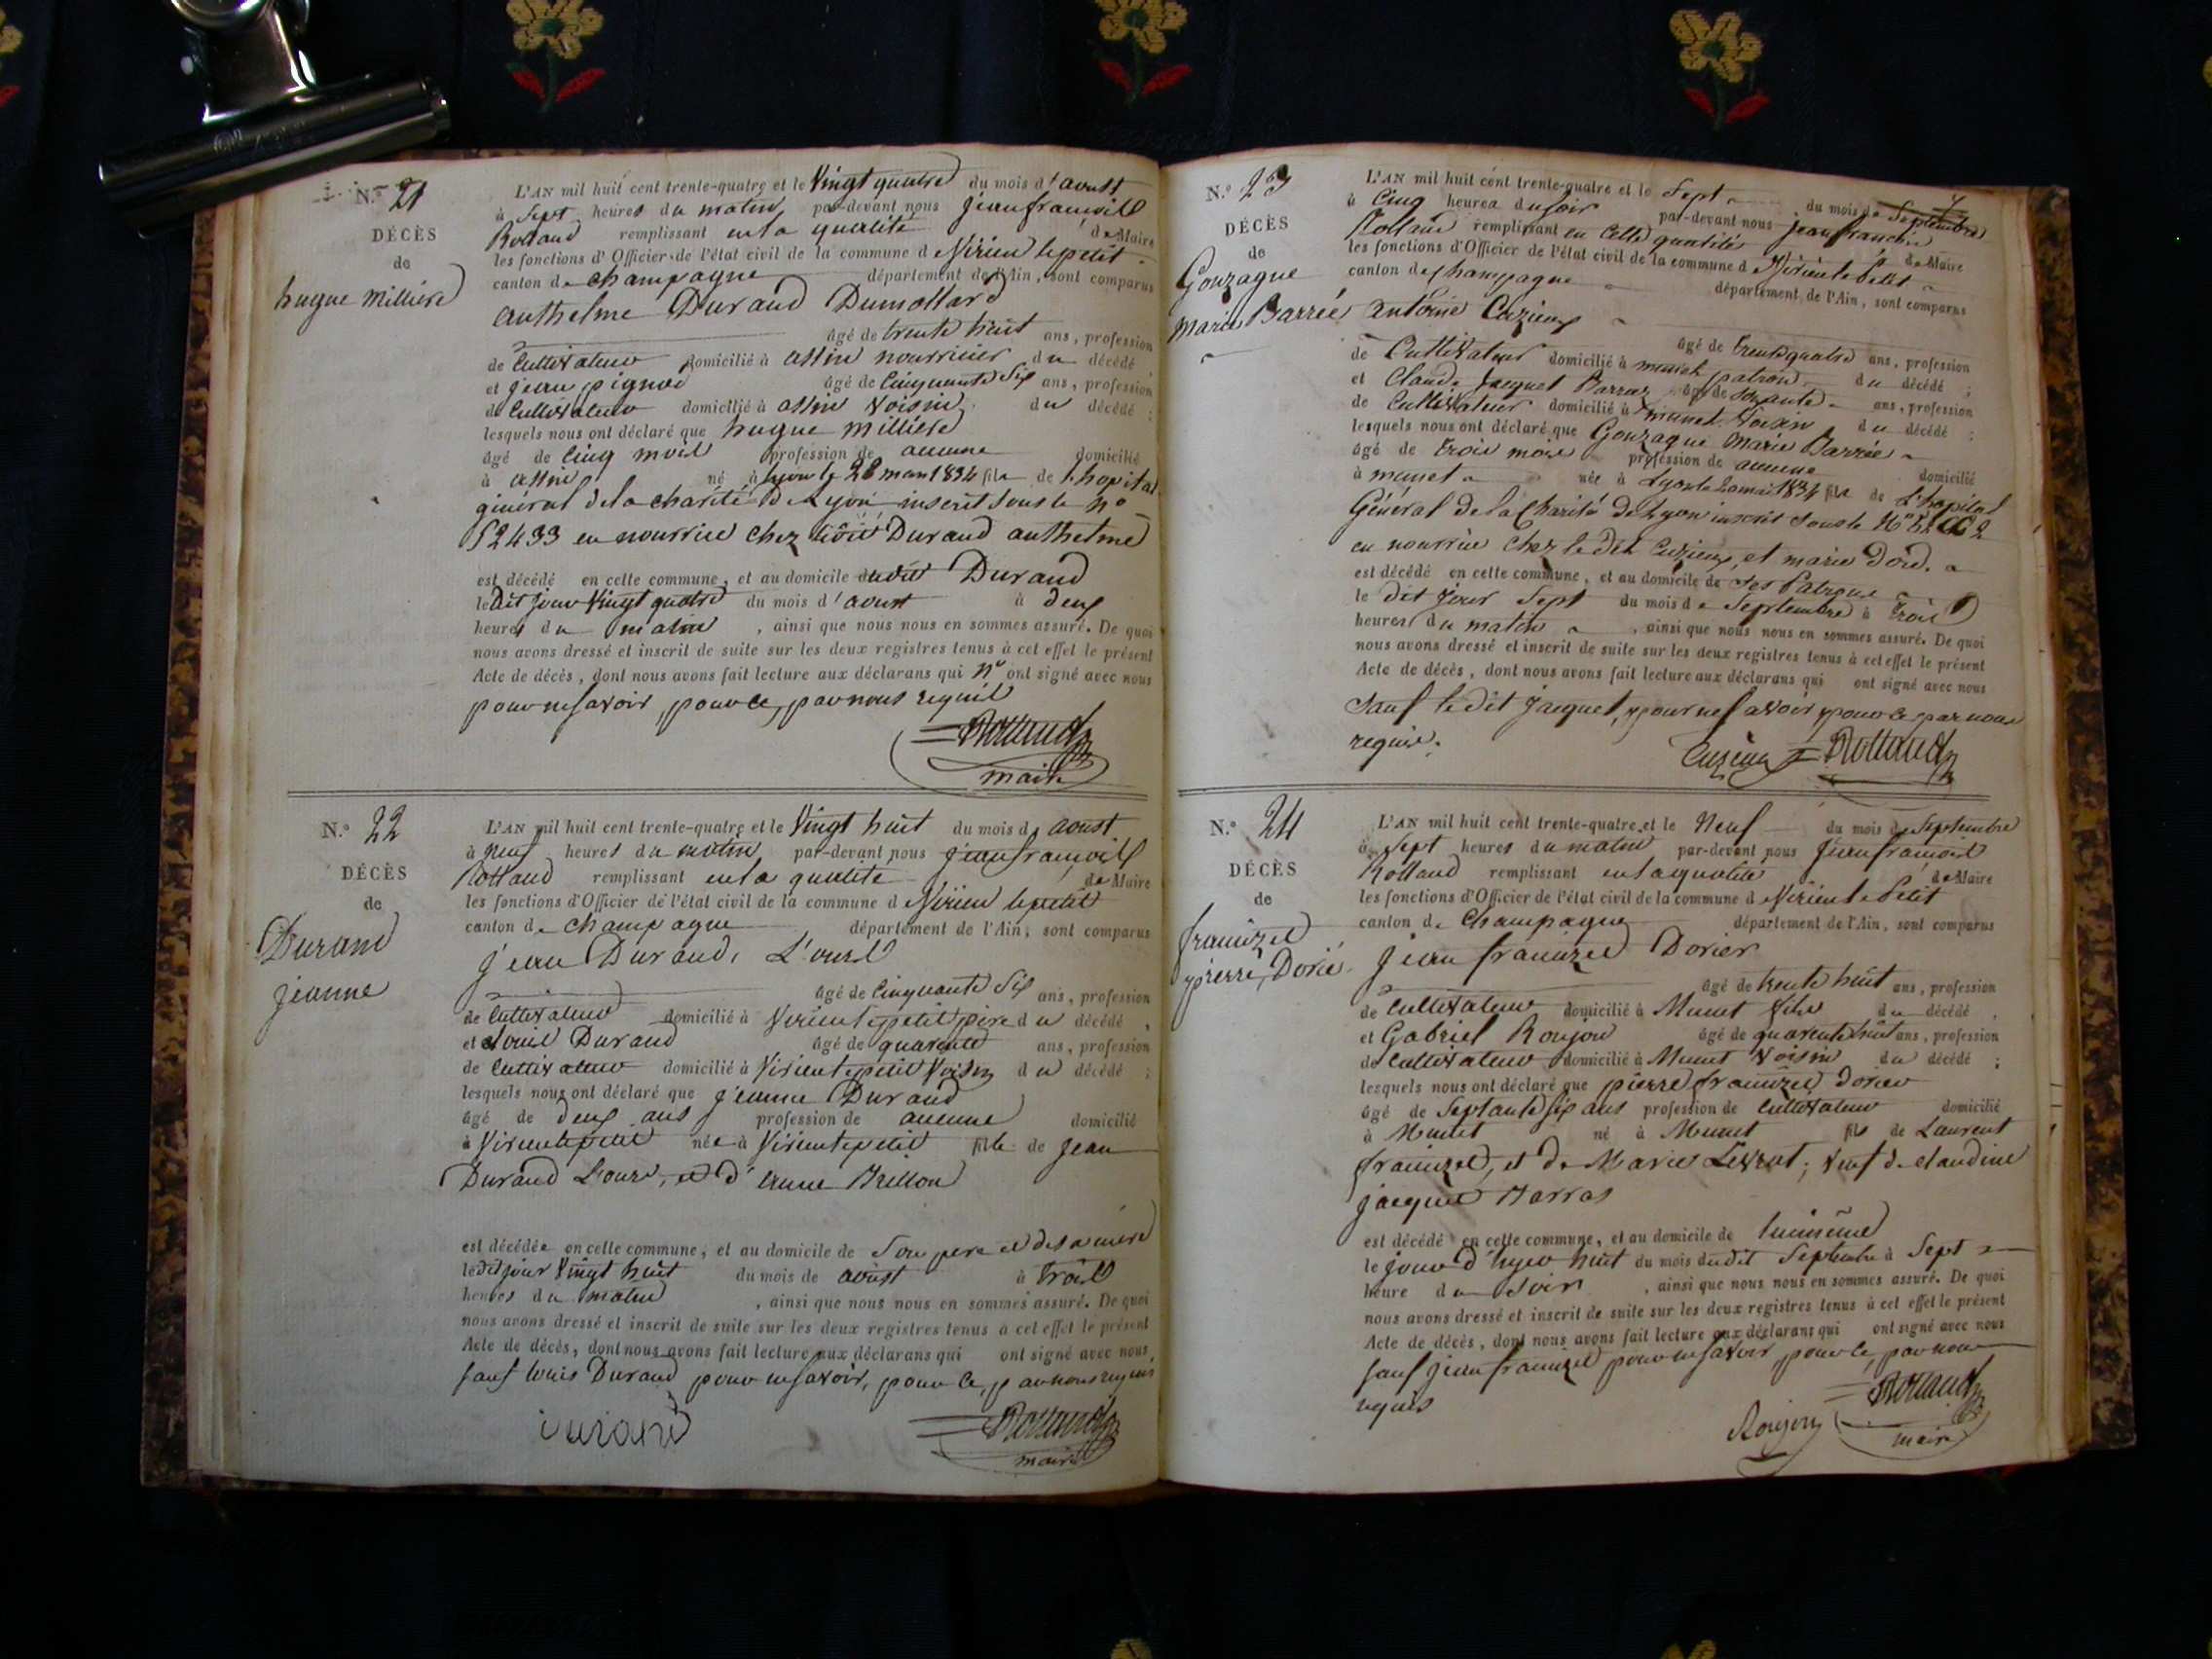 N.° 21
DÉCÈS
de
hugue Millière
L'AN mil huit cent trente-quatre et le Vingt quatre du mois d'aoust
à Sept heures du matin par-devant nous jean françois
Rolland remplissant en la qualité de Maire
les fonctions d'Officier de l'état civil de la commune de Virieu le petit
canton de champagne département de l'Ain, sont comparus
anthelme Durand Dumollard
âgé de trente huit ans, profession
de Cultivateur domicilié à assin nourricier du décédé
et jean pignod âgé de Cinquante Six ans, profession
de Cultivateur domicilié à assin voisin du décédé ;
lesquels nous ont déclaré que hugue millière
âgé de Cinq mois profession de aucune domicilié
à assin né à lyon le 28 mars 1834 fils de l'hopital
général de la charité de Lyon inscrit sous le n°
52433 en nourrice chez Durand anthelme
est décédé en cette commune, et au domicile dudit Durand
ledit jour Vingt quatre du mois d'aoust à deux
heures du matin , ainsi que nous nous en sommes assuré. De quoi
nous avons dressé et inscrit de suite sur les deux registres tenus à cet effet le présent
Acte de décès, dont nous avons fait lecture aux déclarans qui n'ont signé avec nous
pour ne savoir, pour ce, par nous requis
Rolland
maire
N.° 22
DÉCÈS
de
Durand
jeanne
L'AN mil huit cent trente-quatre et le Vingt huit du mois d aoust
à neuf heures du matin par-devant nous jean françois
Rolland remplissant en la qualité de Maire
les fonctions d'Officier de l'état civil de la commune de Virieu le petit
canton de champagne département de l'Ain, sont comparus
jean Durand, L'ours
âgé de Cinquante Six ans, profession
de Cultivateur domicilié à Virieu le petit père du décédé ,
et Louis Durand âgé de quarente ans, profession
de Cultivateur domicilié à Virieu le petit Voisin du décédé ;
lesquels nous ont déclaré que jeanne Durand
âgé de deux ans profession de aucune domicilié
à Virieu le petit née à Virieu le petit fille de jean
Durand L'ours, et d'anne Brillon
est décédée en cette commune, et au domicile de Son pere et de sa mère
ledit jour Vingt huit du mois de aoust à trois
heures du matin , ainsi que nous nous en sommes assuré. De quoi
nous avons dressé et inscrit de suite sur les deux registres tenus à cet effet le présent
Acte de décès, dont nous avons fait lecture aux déclarans qui ont signé avec nous,
sauf louis Durand pour ne savoir, pour ce, par nous requis
durand
Rolland
maire
N.° 23
DÉCÈS
de
Gonzague
Marie Barrée
L'AN mil huit cent trente-quatre et le Sept du mois de Septembre
à Cinq heures du soir par-devant nous jean françois
Rolland remplissant en cette qualité de Maire
les fonctions d'Officier de l'état civil de la commune de Virieu le Petit
canton de champagne département de l'Ain, sont comparus
antoine Cuzieux
âgé de trente quatre ans, profession
de Cultivateur domicilié à munet patron du décédé ;
et Claude Jacquet Barras âgé de soixante ans, profession
de Cultivateur domicilié à munet Voisin du décédé ;
lesquels nous ont déclaré que Gonzague Marie Barrée
âgé de trois mois profession de aucune domicilié
à munet née à Lyon le mai 1834 fille de L'hopital
Général de la Charité de Lyon inscrit sous le N°
en nourrice chez le dit Cuzieux et marie
est décédé en cette commune, et au domicile de ses Patrons
le dit jour Sept du mois de Septembre à Trois
heures du matin , ainsi que nous nous en sommes assuré. De quoi
nous avons dressé et inscrit de suite sur les deux registres tenus à cet effet le présent
Acte de décès, dont nous avons fait lecture aux déclarans qui ont signé avec nous
Sauf le dit Jacquet, pour ne savoir pour ce par nous
requis.
Cuzieux Rolland
N.° 24
DÉCÈS
de
françizel
pierre, Dorié
L'AN mil huit cent trente-quatre et le Neuf du mois de Septembre
à Sept heures du matin par-devant nous jean françois
Rolland remplissant en la qualité de Maire
les fonctions d'Officier de l'état civil de la commune de Virieu le Petit
canton de Champagne département de l'Ain, sont comparus
jean françizel Dorier
âgé de trente huit ans, profession
de Cultivateur domicilié à Munet fils du décédé ,
et Gabriel Roujon âgé de quarente huit ans, profession
de Cultivateur domicilié à Munet Voisin du décédé ;
lesquels nous ont déclaré que pierre françizel dorier
âgé de Septante six ans profession de Cultivateur domicilié
à Munet né à Munet fils de Laurent
françizel, et de Marie Levrat; veuf de claudine
jacquet Barras
est décédé en cette commune, et au domicile de luimême
le jour d'hyer huit du mois dudit Septembre à Sept
heure du Soir , ainsi que nous nous en sommes assuré. De quoi
nous avons dressé et inscrit de suite sur les deux registres tenus à cet effet le présent
Acte de décès, dont nous avons fait lecture aux déclarans qui ont signé avec nous
sauf jean françizel pour ne savoir, pour ce, par nous
requis
Roujon Rolland
maire